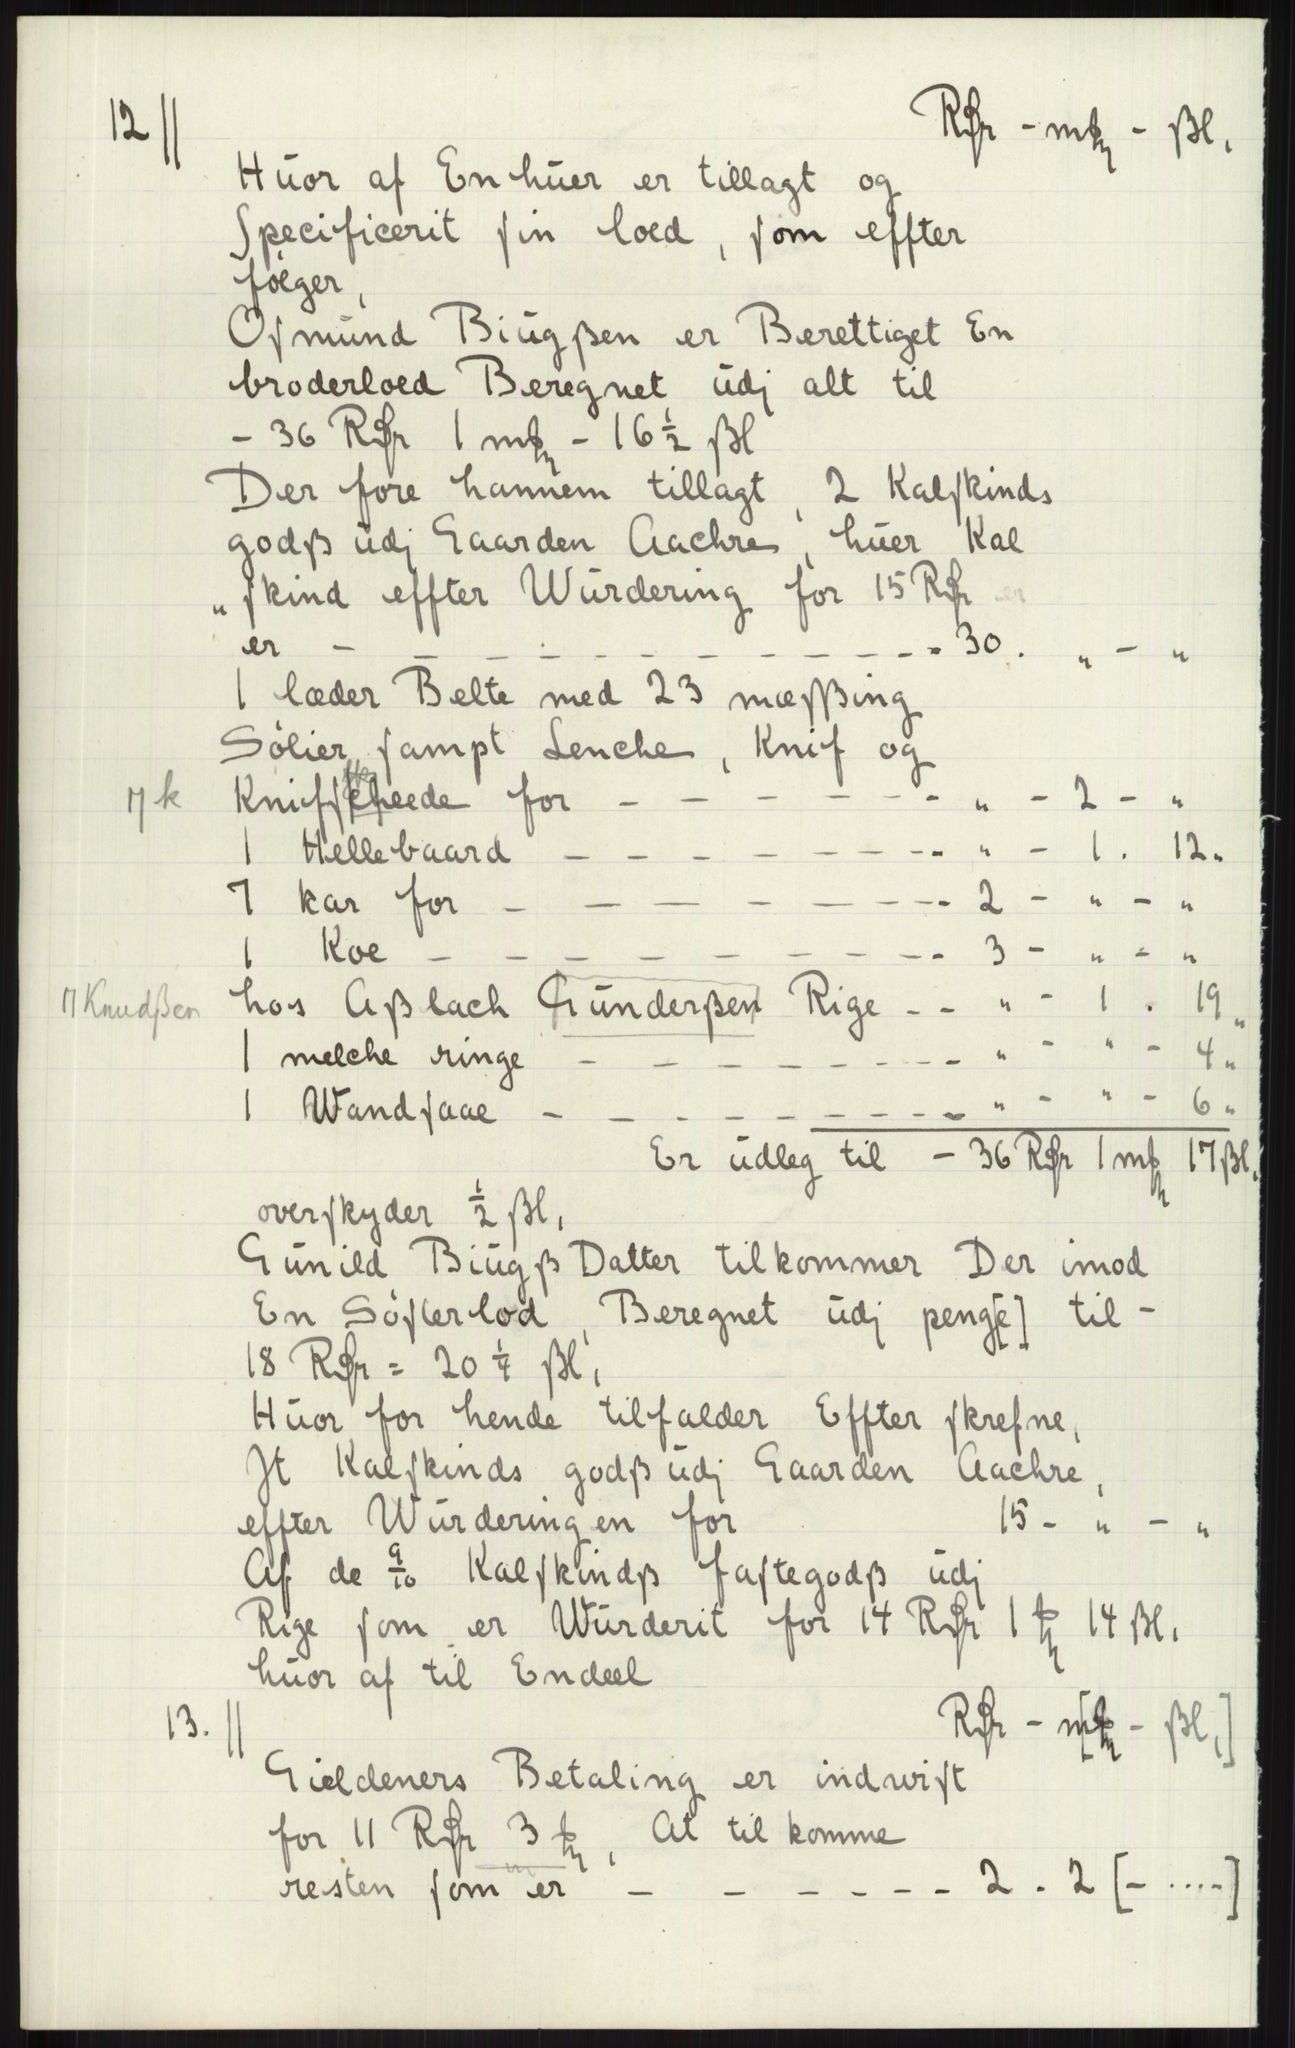 12 || Rdr - mk - ßl,
Hŭor af En hŭer er tillagt og
Specificerit sin loed, som effter
fölger,
Osmŭnd Biŭgßen er Berettiget En
broderloed Beregnet ŭdj alt til
- 36 Rdr 1 mk - 16 1/2 ßl
Der fore hannem tillagt, 2 Kalskinds
godß ŭdj Gaarden Aachre, hŭer Kal
„skind effter Wŭrdering for 15 Rdr er
er - - - - - - - - - - - 30. „ - „
1 læder Belte med 23 mæsßing
Sölier sampt Lenche, Knif og
7 k Knifscheede for - - - - - - - „ - 2 - „
1 Hellebaard - - - - - - - - „ - 1. 12„
7 kar for - - - - - - - - 2 - „ - „
1 Koe - - - - - - - - - 3 - „ - „
7 Knudßen hos Aßlach Gŭnderßen Rige - - „ - 1. 19„
1 melche ringe - - - - - - - - „ - „ - 4„
1 Wandsaae - - - - - - - - „ - „ - 6„
Er ŭdleg til - 36 Rdr 1 mk 17 ßl,
overskyder 1/2 ßl,
Gŭnild Biŭgß Datter tilkommer Der imod
En Sösterlod, Beregnet ŭdj peng[e] til -
18 Rdr = 20 1/4 ßl,
Hŭor for hende tilfalder Effter skrefne,
Jt Kalskinds godß ŭdj Gaarden Aachre,
effter Wŭrderingen for 15 - „ - „
Af de 9/10 Kalskindß fastegodß ŭdj
Rige som er Wŭrderit for 14 Rdr 1 k 14 ßl,
hŭor af til Endeel
13. || Rdr - m[k - ßl,]
Gieldeners Betaling er indwist
for 11 Rdr 3 k, At til komme
m
resten som er - - - - - - - 2 . 2 [- ....-]